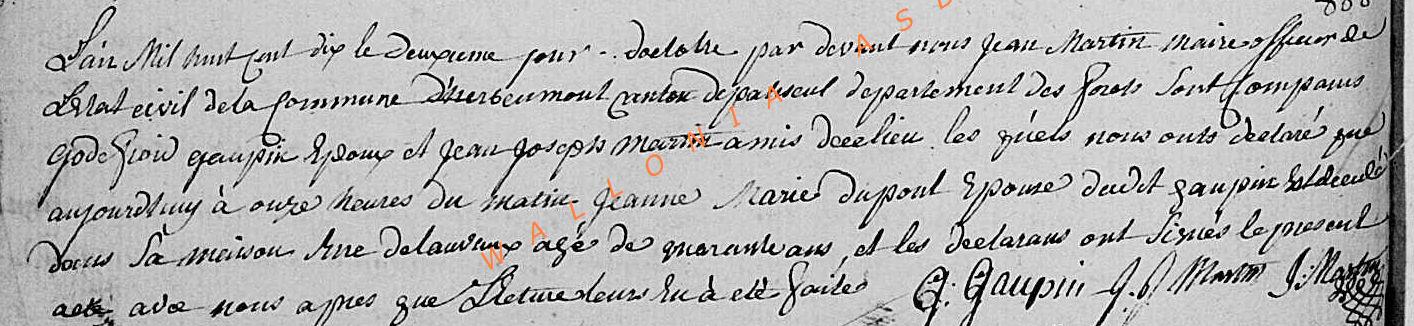 L'an Mil huit cent dix le deuxieme jour d'octobre par devant nous Jean Martin maire officier de
L'Etat civil de la Commune d'herbeumont canton de paliseul departement des forets sont Comparus
godefroid gaupin Epoux et Jean Joseph Martin amis de ce lieu les quels nous onts declaré que
aujourdhuy à onze heures du matin Jeanne Marie dupont Epouse dudit gaupin est decedé
dans sa maison rue agé de quarante ans, et les declarans ont signés le present
acte avec nous apres que Lecture leurs En à eté faite G: Gaupin J. J Martin J: Martin
WALLONIA ASB